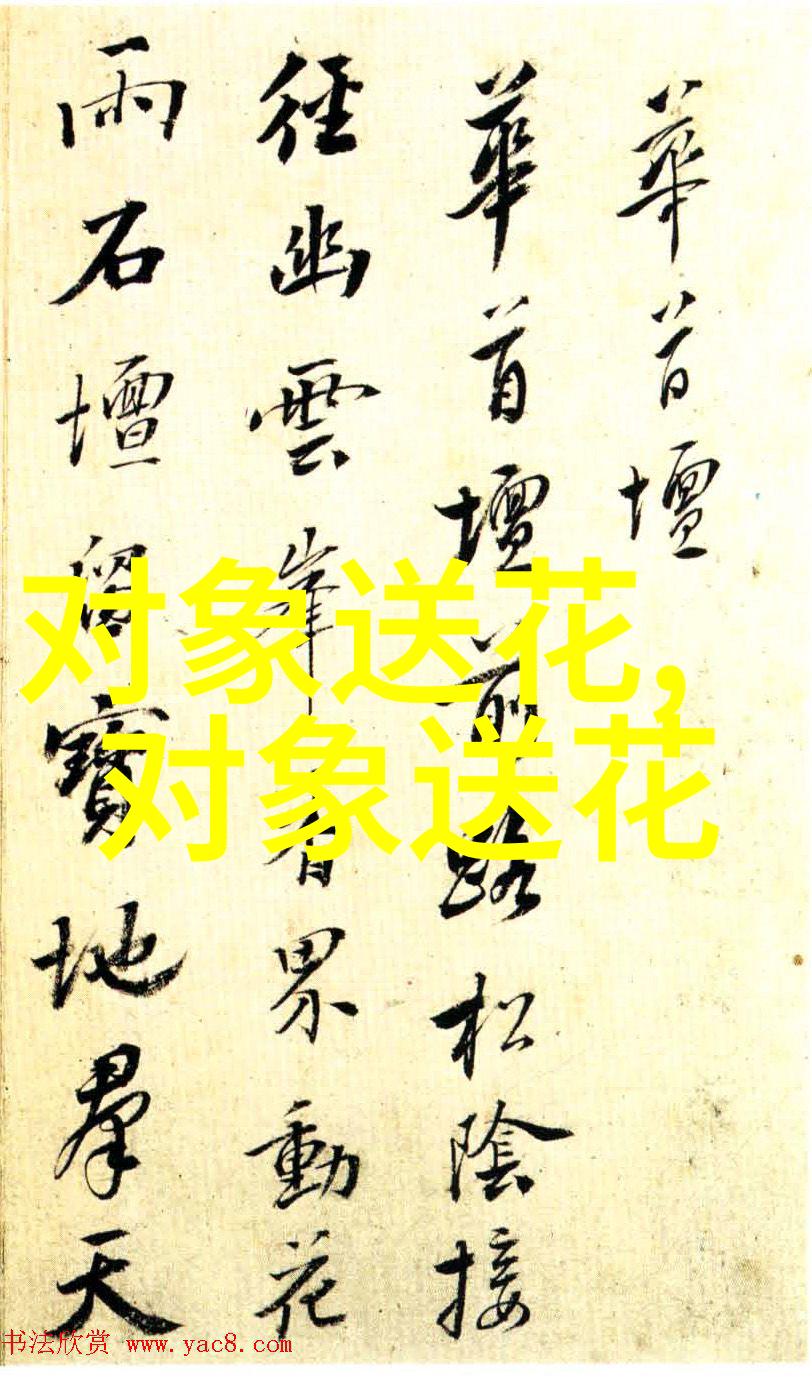 華首壇
華首壇前路松陰接
徑幽雲峰香界動花
雨石壇留寶地羣天
对象送花,
对象送花
书法欣赏 www.yac8.com